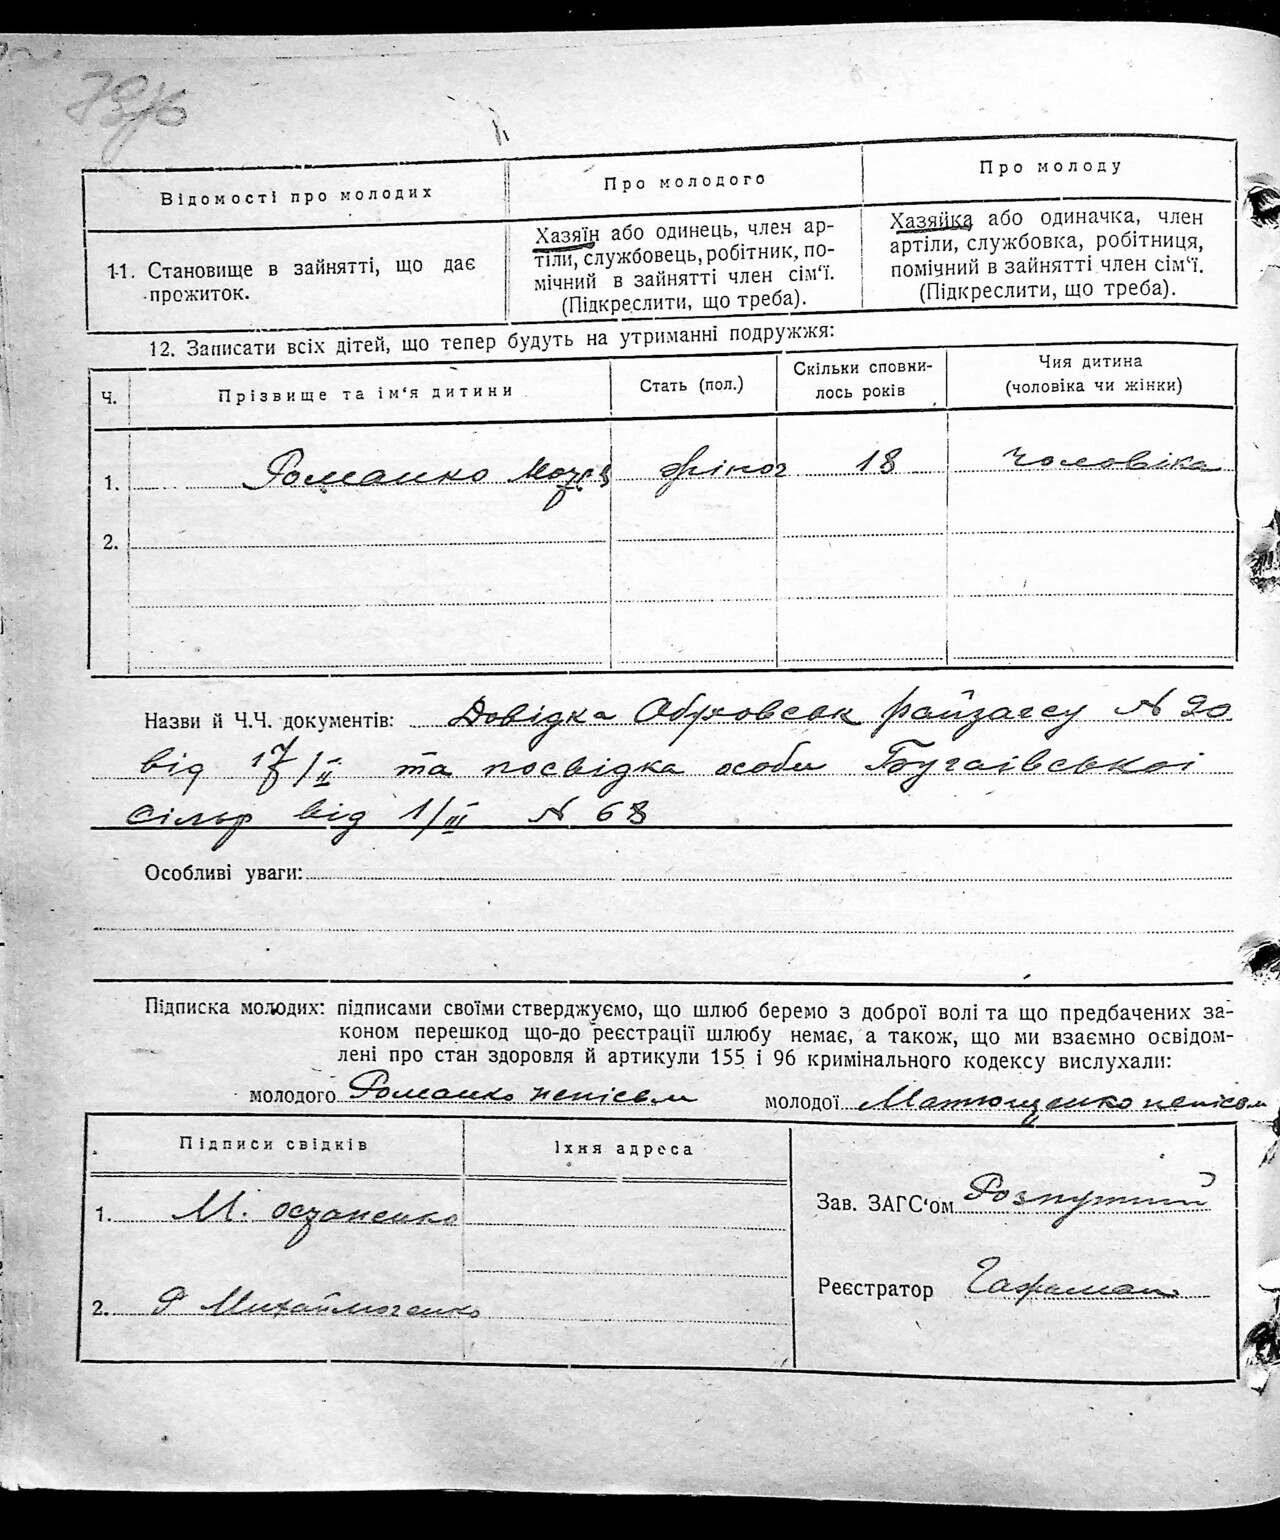 Відомості про молодих
Про молодого
Про молоду
11. Становище в зайнятті, що дає
прожиток.
Хазяїн або одинець, член ар-
тіли, службовець, робітник, по-
мічний в зайнятті член сім‘ї.
(Підкреслити, що треба).
Хазяйка або одиначка, член
артіли, службовка, робітниця,
помічний в зайнятті член сім‘ї.
(Підкреслити, що треба).
12. Записати всіх дітей, що тепер будуть на утриманні подружжя:
Ч.
Прізвище та ім‘я дитини
Стать (пол.)
Скільки сповни-
лось років
Чия дитина
(чоловіка чи жінки)
1. Романко 18 чоловіка
2.
Назви й Ч.Ч. документів: Довідка Обуховськ райзагсу N 20
від 17/II та посвідка особи Бугаївської
сільр від 1/III N 68
Особливі уваги:
Підписка молодих: підписами своїми стверджуємо, що шлюб беремо з доброї волі та що предбачених за-
коном перешкод що-до реєстрації шлюбу немає, а також, що ми взаємно освідом-
лені про стан здоровля й артикули 155 і 96 кримінального кодексу вислухали:
молодого Романко непісьм молодої Матющенко непісьм
Підписи свідків
Їхня адреса
1. М. Остапенко
2. Р Михайличенко
Зав. ЗАГС‘ом Розпутний
Реєстратор